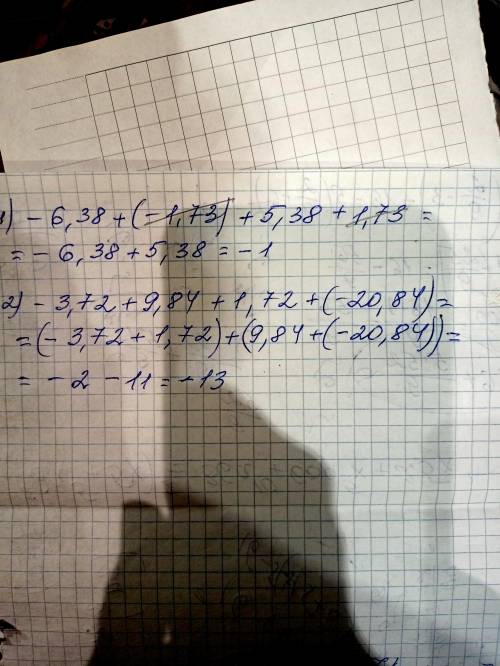 1) - 6,38 + (-1,73) + 5,38 + 1,73 =
= - 6,38 + 5,38 = - 1
2) - 3,72 + 9,84 + 1,72 + (-20,84) =
= (- 3,72 + 1,72) + (9,84 + (-20,84)) =
= - 2 - 11 = - 13